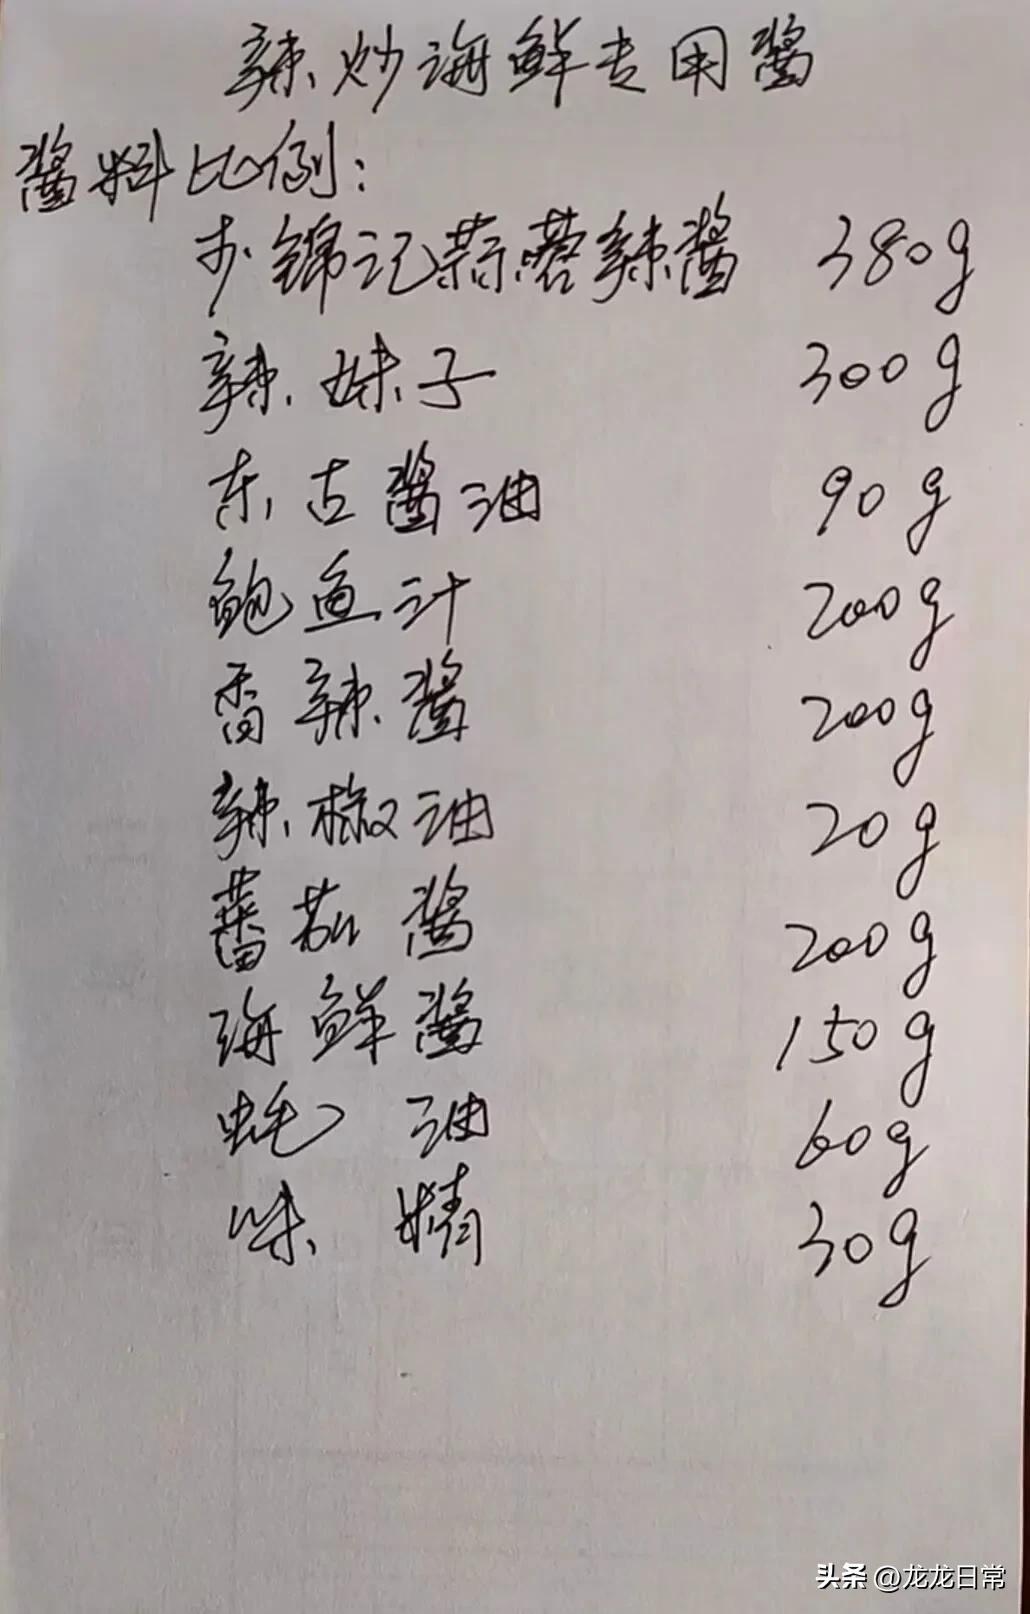 辣炒海鲜专用酱
酱料比例:
锦记蒜蓉辣酱 380g
辣妹子 300g
东古酱油 90g
鲍鱼汁 200g
香辣酱 200g
辣椒油 20g
蕃茄酱 200g
海鲜酱 150g
蚝油 60g
味精 30g
头条 @龙龙日常